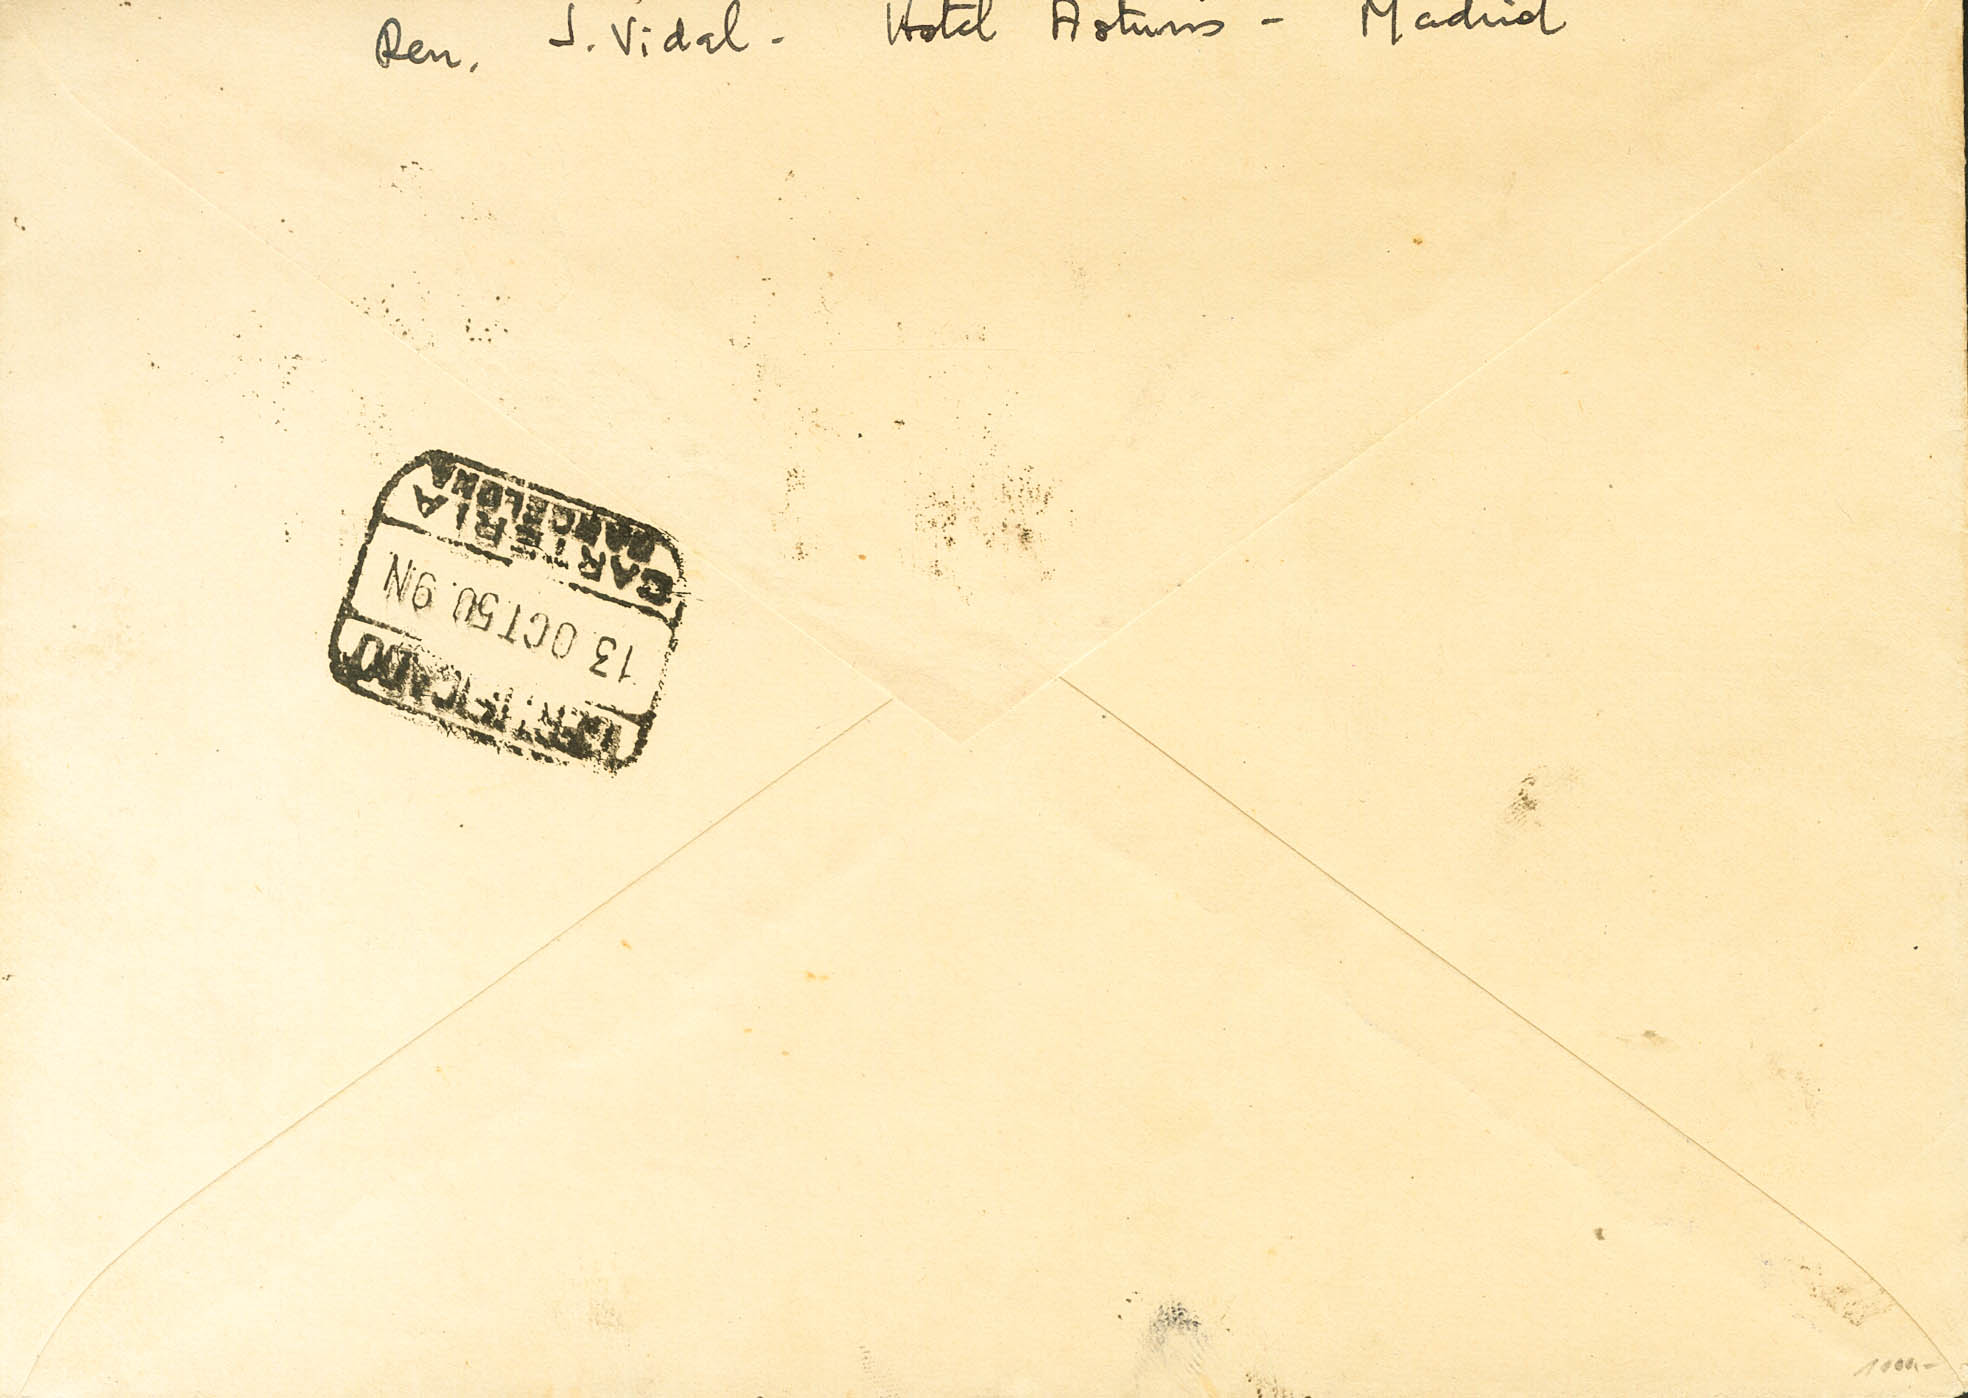 Rem. J. Vidal - Hotel Asturias - Madrid
CERTIFICADO
13 OCT 50. 9N
CARTERIA
BARCELONA
1000-